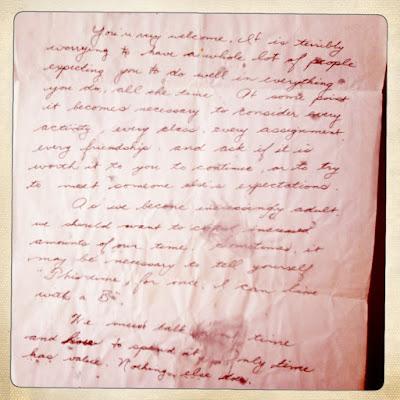 You're very welcome. It is terribly
worrying to have a whole lot of people
expecting you to do well in everything
you do, all the time. At some point
it becomes necessary to consider every
activity, every class, every assignment,
every friendship, and ask if it is
worth it to you to continue, or to try
to meet someone else's expectations.
As we become increasingly adult,
we should want to increased
amounts of our time. Sometimes, it
may be necessary to tell yourself
"This time, for once, I can live
with a B".
We must talk time
and how to spend it only time
has value. Nothing else does.